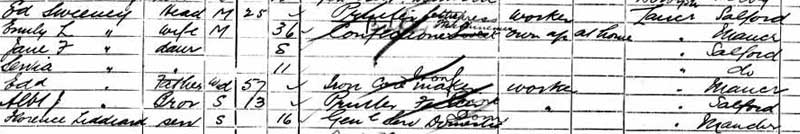 Ed Sweeney Head M 25 worker Lancr Salford
Emily L " wife M 36 Confectioner own ap at home " Mancr
Jane F " daur 8 " Salford
" 11 " do
Edd " Father Wd 57 Iron Core maker worker " Mancr
Albt J " Bror S 13 " " Salford
Florence Liddeard serv S 16 Genl Serv Domestic " Manchr